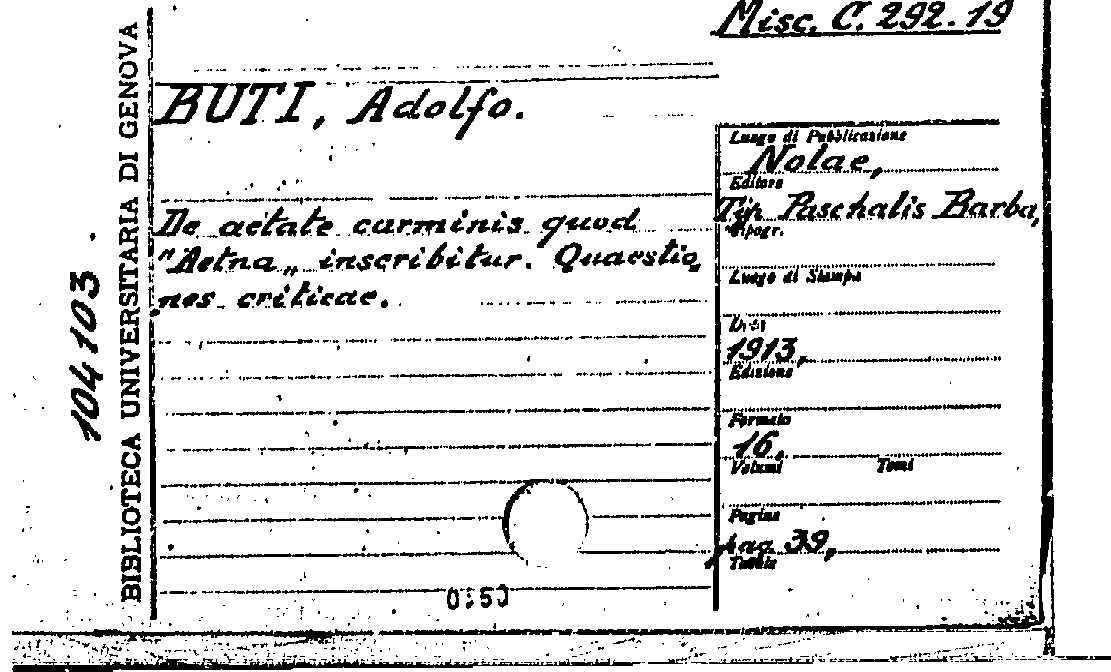 Misc. C. 292. 19
BUTI, Adolfo.
De aetate carminis quod
"Aetna„ inscribitur. Quaestio
nes criticae.
Luogo di Pubblicazione
Nolae,
Editore
Tip. Paschalis Barba,
Tipogr.
Luogo di Stampa
Data
1913,
Edizione
Formato
16,
Volumi Tomi
Pagine
pag 39,
Tavole
BIBLIOTECA UNIVERSITARIA DI GENOVA
104103